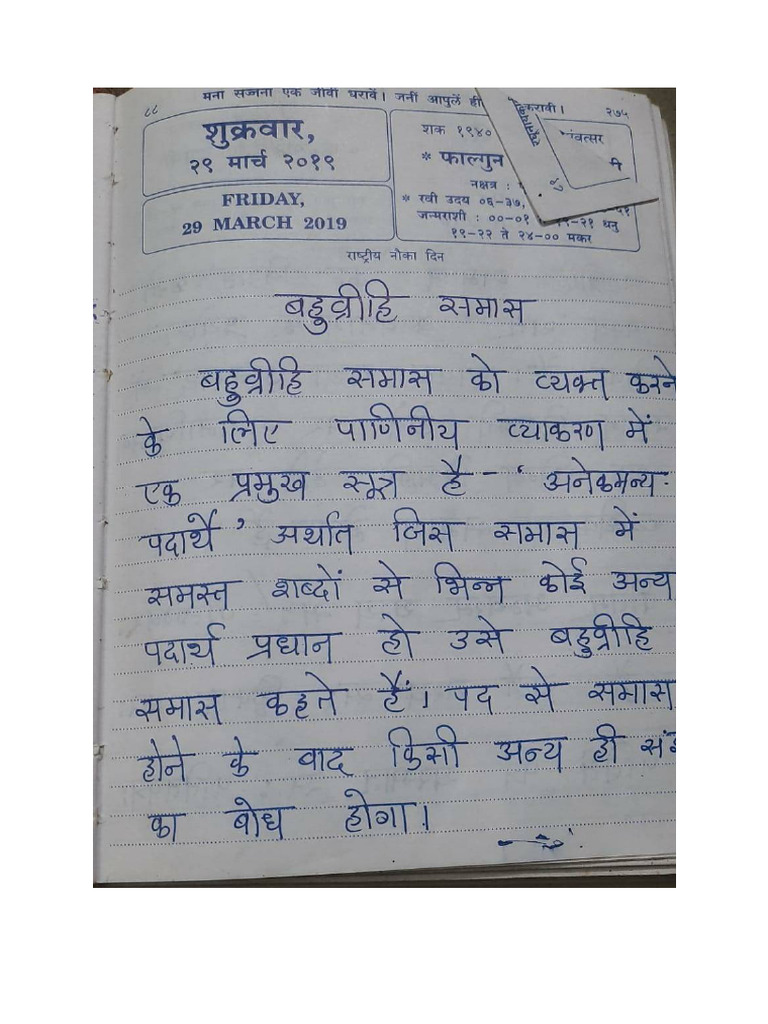 मना सज्जना एक जीवीं धरावें। जनीं आपुलें ही करावी।
८८
२७५
शुक्रवार,
२९ मार्च २०१९
FRIDAY,
29 MARCH 2019
शक १९४०
संवत्सर
* फाल्गुन
नक्षत्र :
* रवी उदय ०६-३७,
जन्मराशी : ००-०१ १९-२१ धनु
१९-२२ ते २४-०० मकर
राष्ट्रीय नौका दिन
बहुव्रीहि समास
बहुव्रीहि समास को व्यक्त करने
के लिए पाणिनीय व्याकरण में
एक प्रमुख सूत्र है - ' अनेकमन्य-
पदार्थे ' अर्थात जिस समास में
समस्त शब्दों से भिन्न कोई अन्य
पदार्थ प्रधान हो उसे बहुव्रीहि
समास कहते हैं। पद से समास
होने के बाद किसी अन्य ही
का बोध होगा।